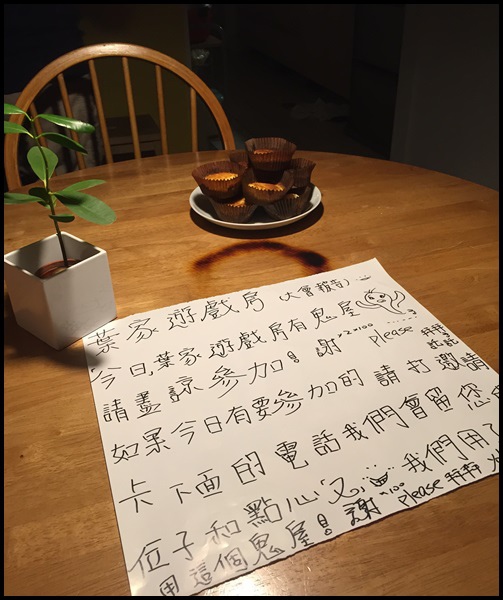 葉家遊戲房
今日,葉家遊戲房有鬼屋
請盡諒參加! 謝 x2x100 please 拜拜
託託
如果今日有要參加的請打邀請
卡下面的電話我們會留您
位子和點心又 x100 我們用了
用這個鬼屋! 謝 please 拜拜